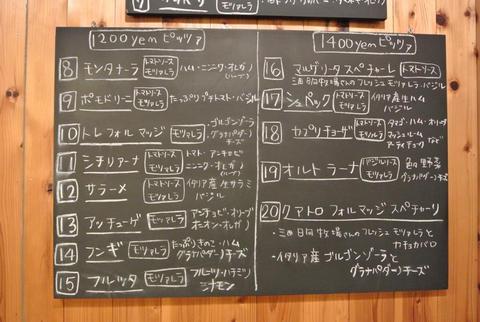 1200yen ピッツァ
8 モンタナーラ トマトソース モツァレラ ハム・ニンニク・オレガノ (ハーブ)
9 ポモドリーニ モツァレラ たっぷりプチトマト・バジル
10 トレ フォル マッジ モツァレラ ・ゴルゴンゾーラ ・グラナパダーノチーズ
11 シチリアーナ トマトソース モツァレラ トマト・アンチョビ ニンニク・オレガノ (ハーブ)
12 サラーメ トマトソース モツァレラ イタリア産 生サラミ バジル
13 アンチューガ モツァレラ アンチョビ・オリーブ オニオン・オレガノ
14 フンギ モツァレラ たっぷりきのこ・ハム グラナパダーノチーズ
15 フルッタ モツァレラ フルーツ・ハチミツ シナモン
1400yen ピッツァ
16 マルゲリータ スペチャーレ トマトソース
三田日向牧場さんのフレッシュモツァレラ・バジル
17 シュペック トマトソース モツァレラ イタリア産生ハム バジル
18 カプリチョーザ トマトソース モツァレラ タマゴ・ハム・オリーブ マッシュルーム アーティチョーク など
19 オルトラーナ バジルソース モツァレラ 色々野菜 グラナパダーノチーズ
20 クアトロ フォルマッジ スペチャーリ
・三田日向牧場さんのフレッシュモツァレラと
カチョカバロ
・イタリア産 ゴルゴンゾーラと
グラナパダーノチーズ